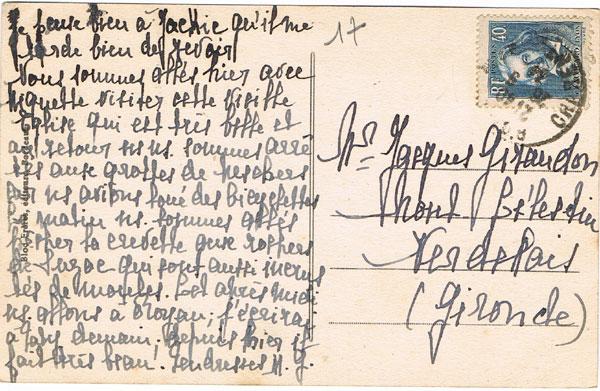 Je pense bien à Jackie qu'il me
tarde bien de revoir
Nous sommes allés hier avec
Huguette visiter cette vieille
Eglise qui est très belle et
au retour ns ns. sommes arrê
tés aux grottes de Meschers
car ns avions loué des bicyclettes
ce matin ns. sommes allés
pêcher la crevette aux rochers
de Suzac qui sont aussi incrus
tés de moules. Cet après midi
ns allons à Royan; t'écrirai
à tous demain. Depuis hier il
fait très beau. Tendresses H. G.
17
40
Mr Jacques Giraudon
Mont Célestin
Verdelais
(Gironde)